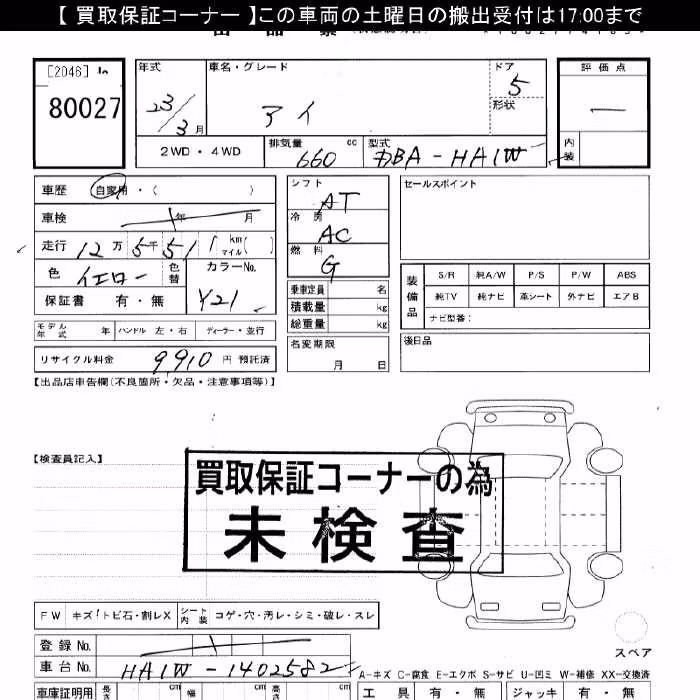 【 買取保証コーナー 】この車両の土曜日の搬出受付は17:00まで
[2046]
80027
年式 車名・グレード ドア 評価点
23/3月 アイ 5 形状 一
2WD ・ 4WD 排気量 660 cc 型式 DBA-HA1W 内装
車歴 自家用 ・ ( )
車検 年 月
走行 12万 5千 51 km マイル ( )
色 イエロー 色替 カラーNo. Y21
保証書 有 ・ 無
シフト AT
冷房 AC
燃料 G
乗車定員 名
積載量 kg
総重量 kg
名変期限
月 日
セールスポイント
装備品
S/R 純A/W P/S P/W ABS
純TV 純ナビ 革シート 外ナビ エアB
ナビ型番:
後日品
モデル年式 年 ハンドル 左・右 ディーラー・並行
リサイクル料金 9910 円 預託済
【出品店申告欄(不良箇所・欠品・注意事項等)】
【検査員記入】
買取保証コーナーの為
未検査
FW キズ!トビ石・割レX シート内装 コゲ・穴・汚レ・シミ・破レ・スレ
登録 No.
車台 No. HA1W-1402582
スペア
A-キズ C-腐食 E-エクボ S-サビ U-凹ミ W-補修 XX-交換済
車庫証明用 長さ cm 幅 cm 高さ cm
工具 有 ・ 無 ジャッキ 有 ・ 無